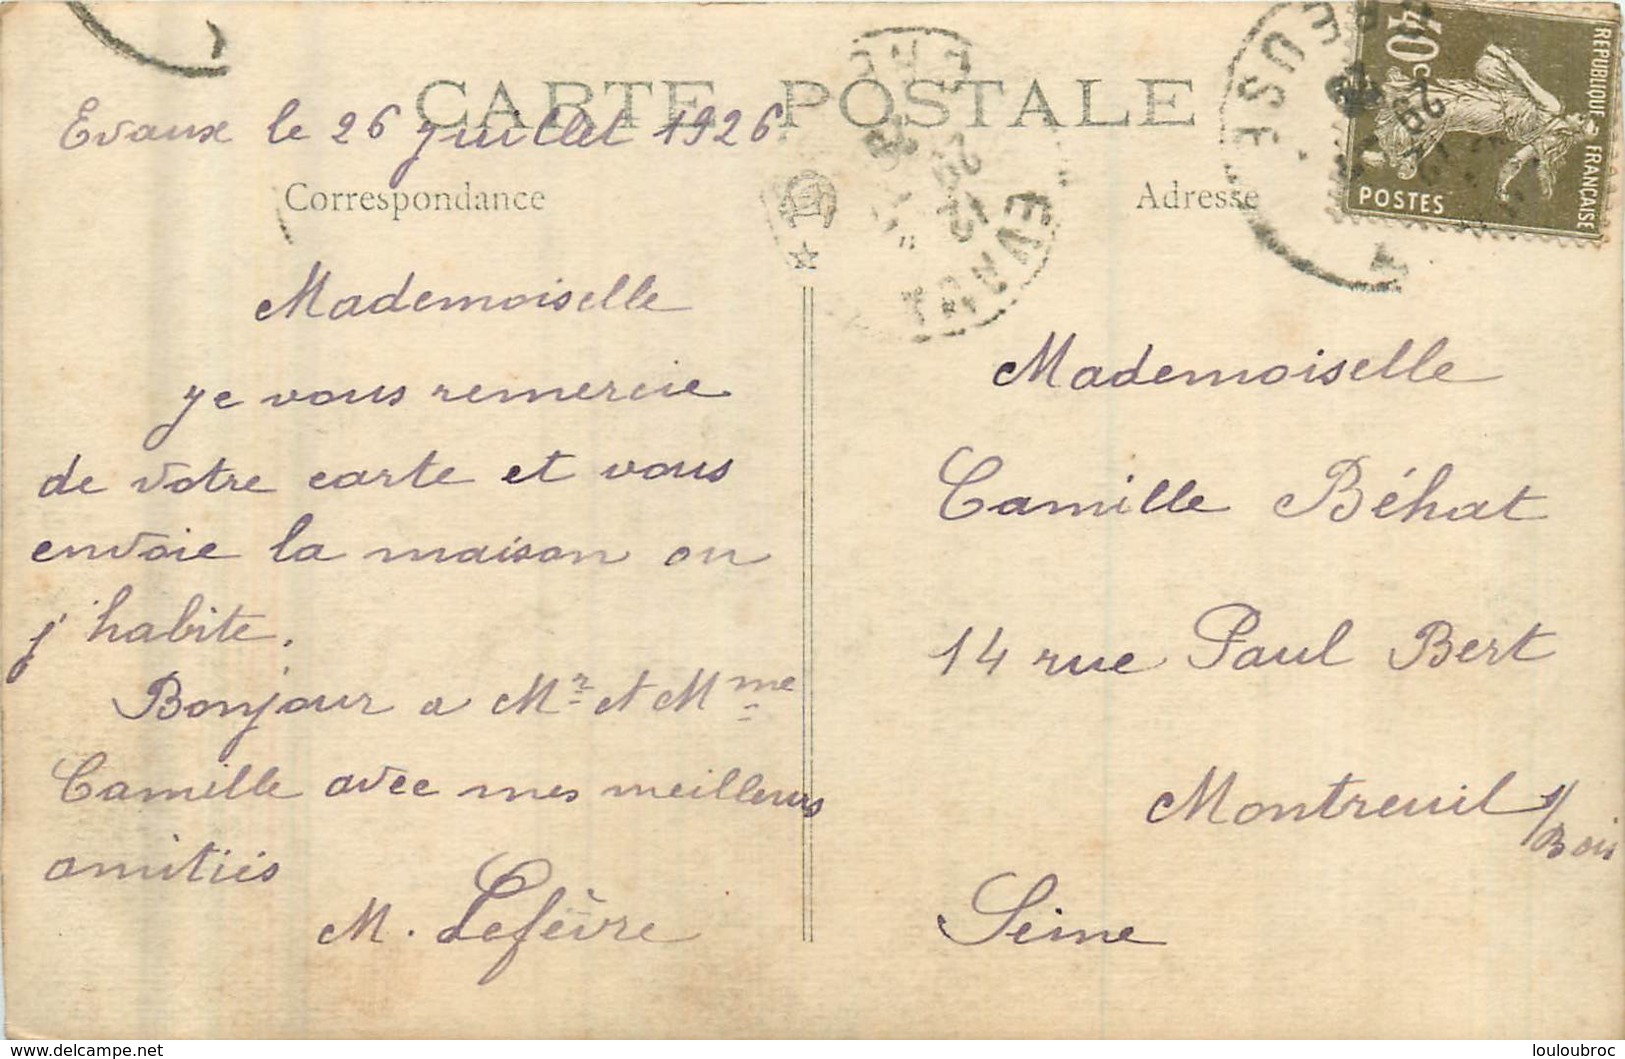 CARTE POSTALE
Evaux le 26 juillet 1926
Correspondance
Mademoiselle
je vous remercie
de votre carte et vous
envoie la maison ou
j'habite.
Bonjour a Mr et Mme
Camille avec mes meilleurs
amitiés
M. Lefèvre
Adresse
40c
REPUBLIQUE FRANÇAISE
POSTES
CREUSE
Mademoiselle
Camille Béhat
14 rue Paul Bert
Montreuil s/Bois
Seine
www.delcampe.net
louloubroc